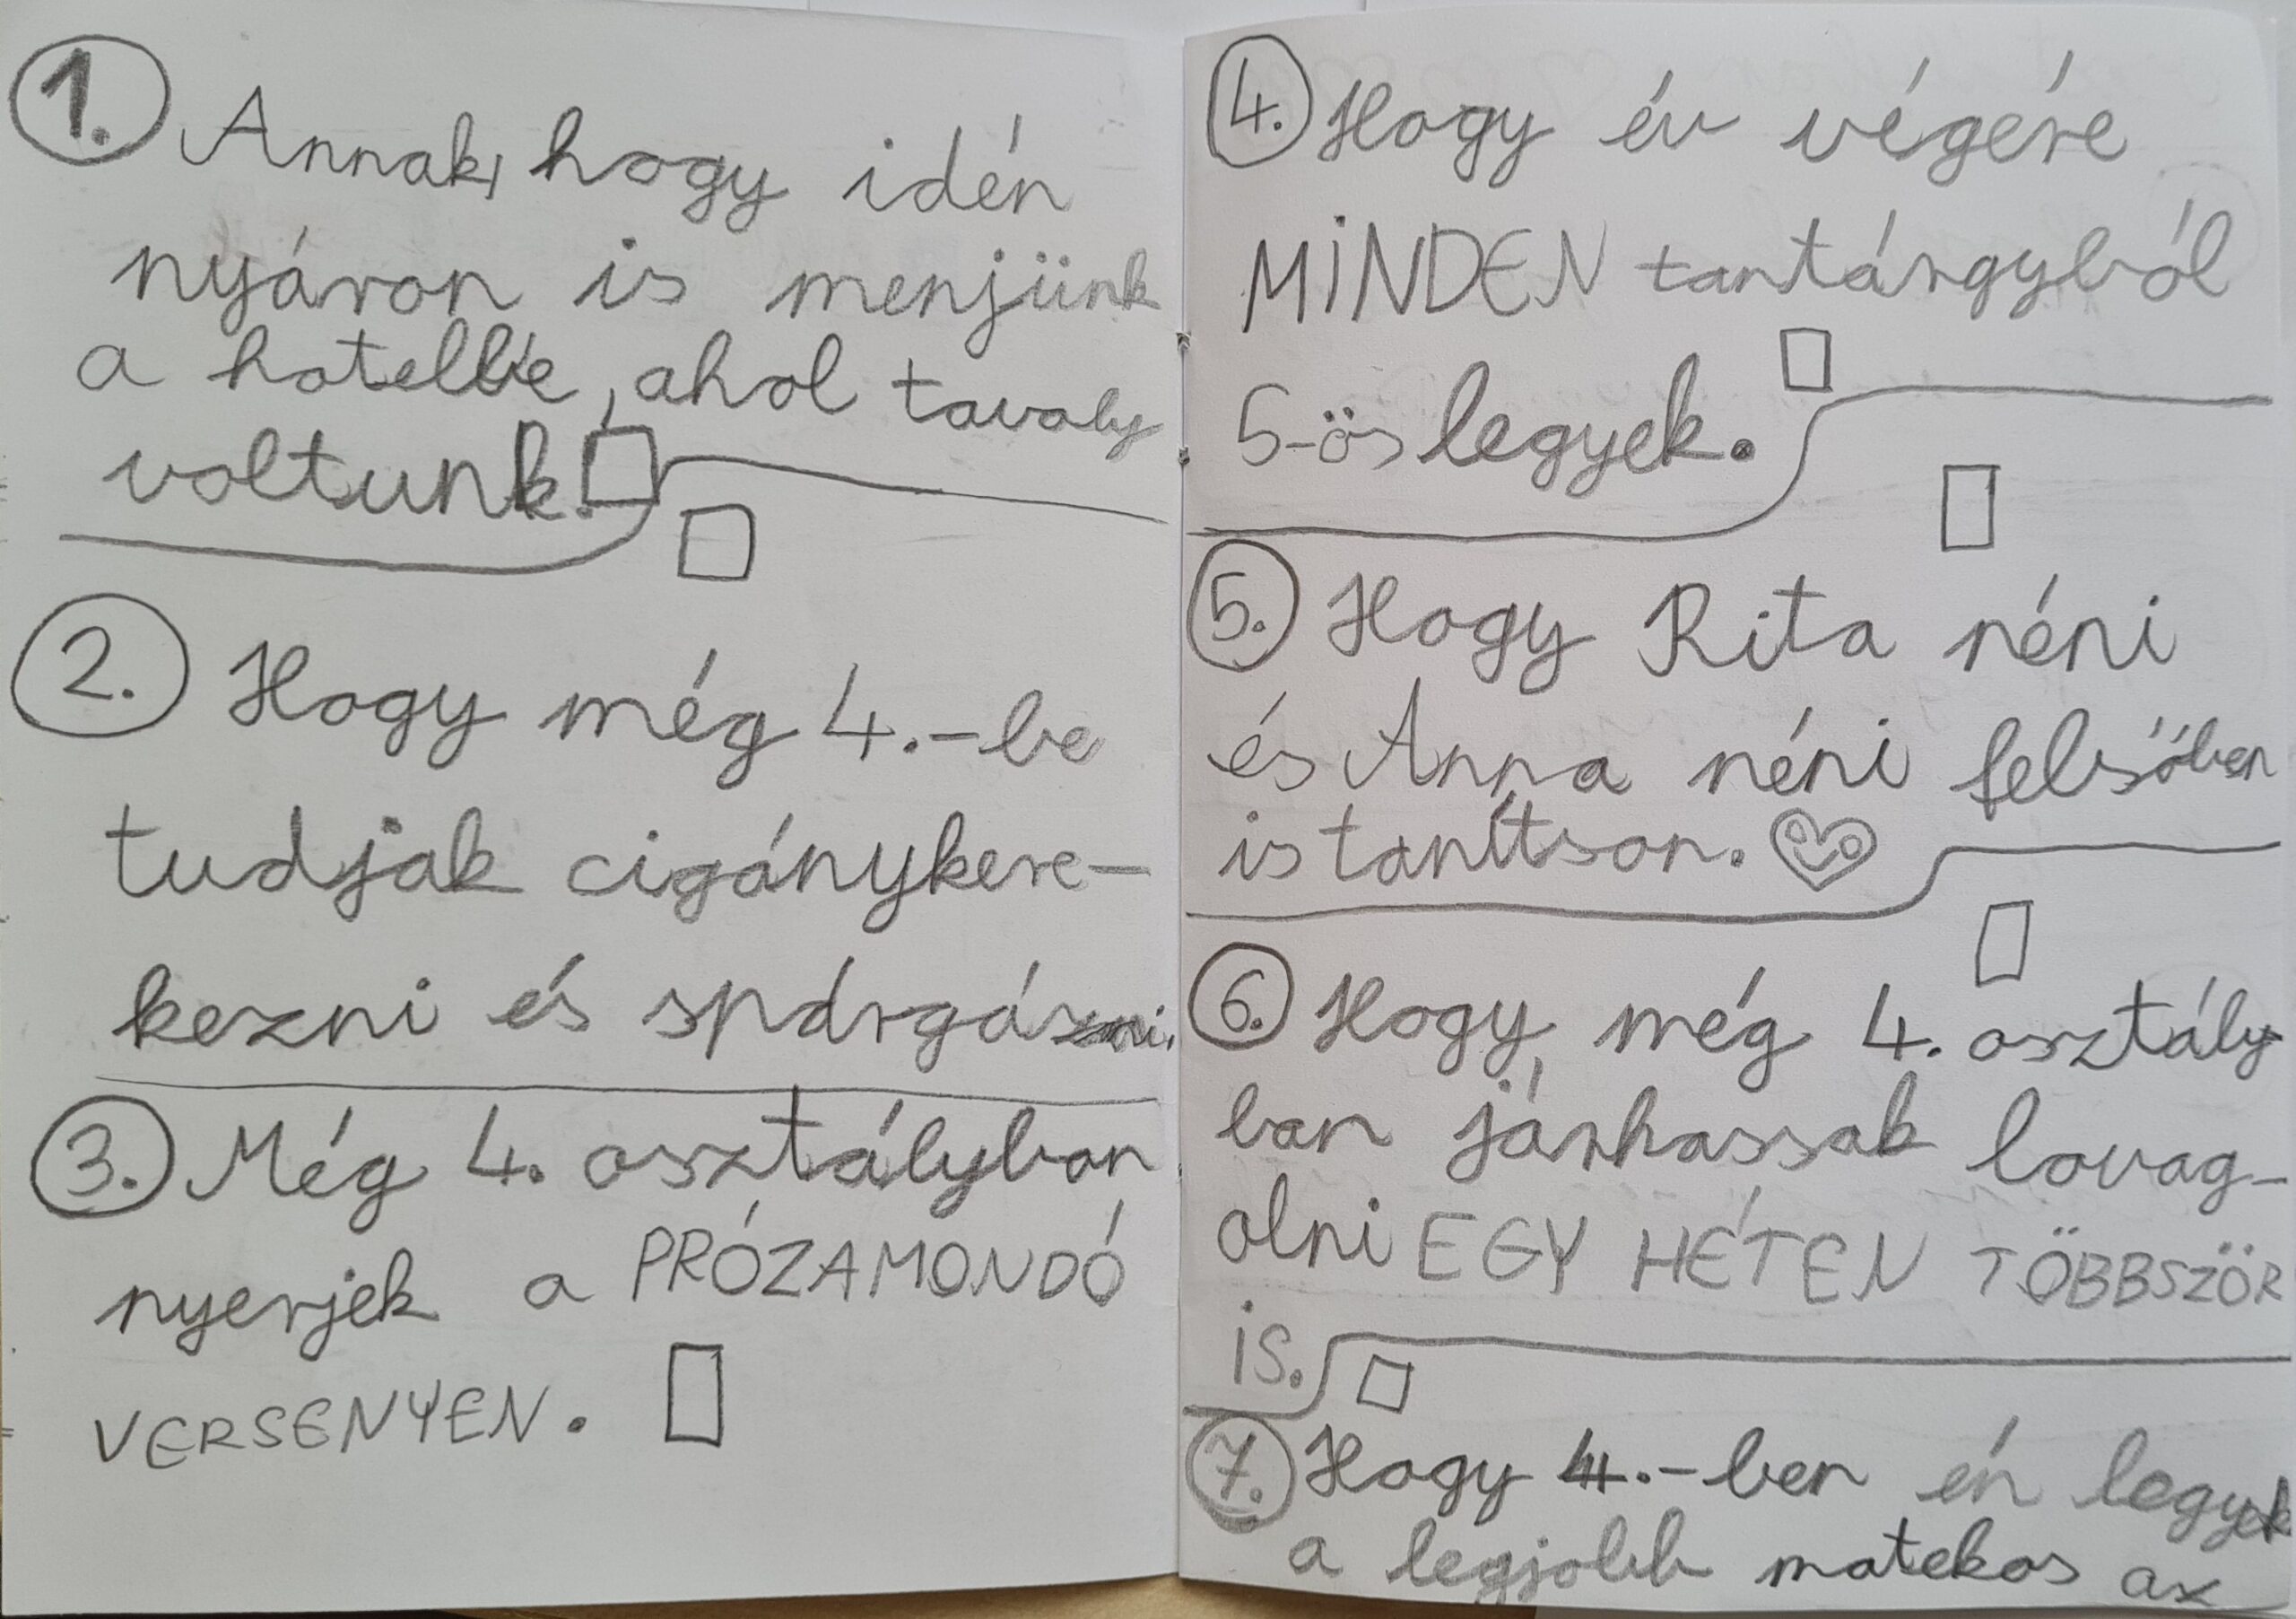 1. Annak, hogy idén
nyáron is menjünk
a hotelbe, ahol tavaly
voltunk.
2. Hogy még 4.-be
tudjak cigánykere-
kezni és spárgázni.
3. Még 4. osztályban
nyerjek a PRÓZAMONDÓ
VERSENYEN.
4. Hogy év végére
MINDEN tantárgyból
5-ös legyek.
5. Hogy Rita néni
és Anna néni felsőben
is tanítson.
6. Hogy még 4. osztály
ban járhassak lovag-
olni EGY HÉTEN TÖBBSZÖR
is.
7. Hogy 4.-ben én legyek
a legjobb matekos az